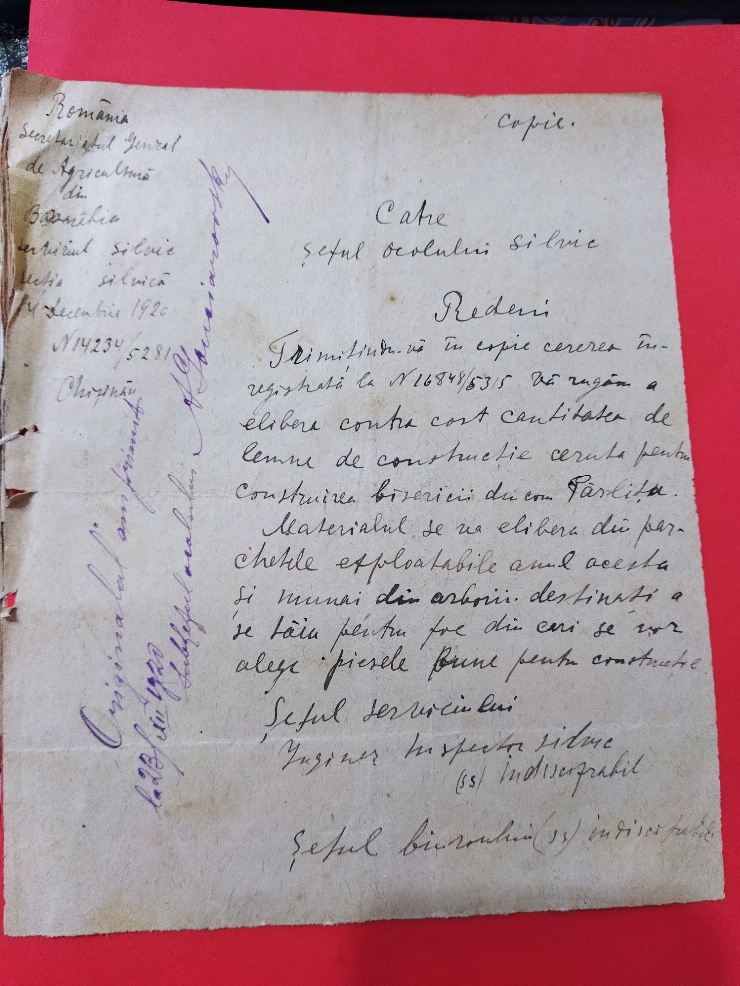 România
Secretariatul General
de Agricultură
din
Basarabia
serviciul silvic
sectia silvică
14 Decembrie 1920
N 14234/5281
Chișinău
Copie.
Catre
Șeful ocolului silvic
Redeni
Trimițindu-vă în copie cererea în-
registrată la N 16848/5315 vă rugăm a
elibera contra cost cantitatea de
lemne de constructie ceruta pentru
construirea bisericii din com Pârlița.
Materialul se va elibera din par-
chetele exploatabile anul acesta
și numai din arborii destinati a
se tăia pentru foc din cari se vor
alege piesele bune pentru constructie.
Șeful serviciului
Inginer Inspector silvic
(ss) indiscifrabil
Șeful biuroului (ss) indiscifrabil
Originalul am primit
la 23/XII 1920
Subșeful ocolului